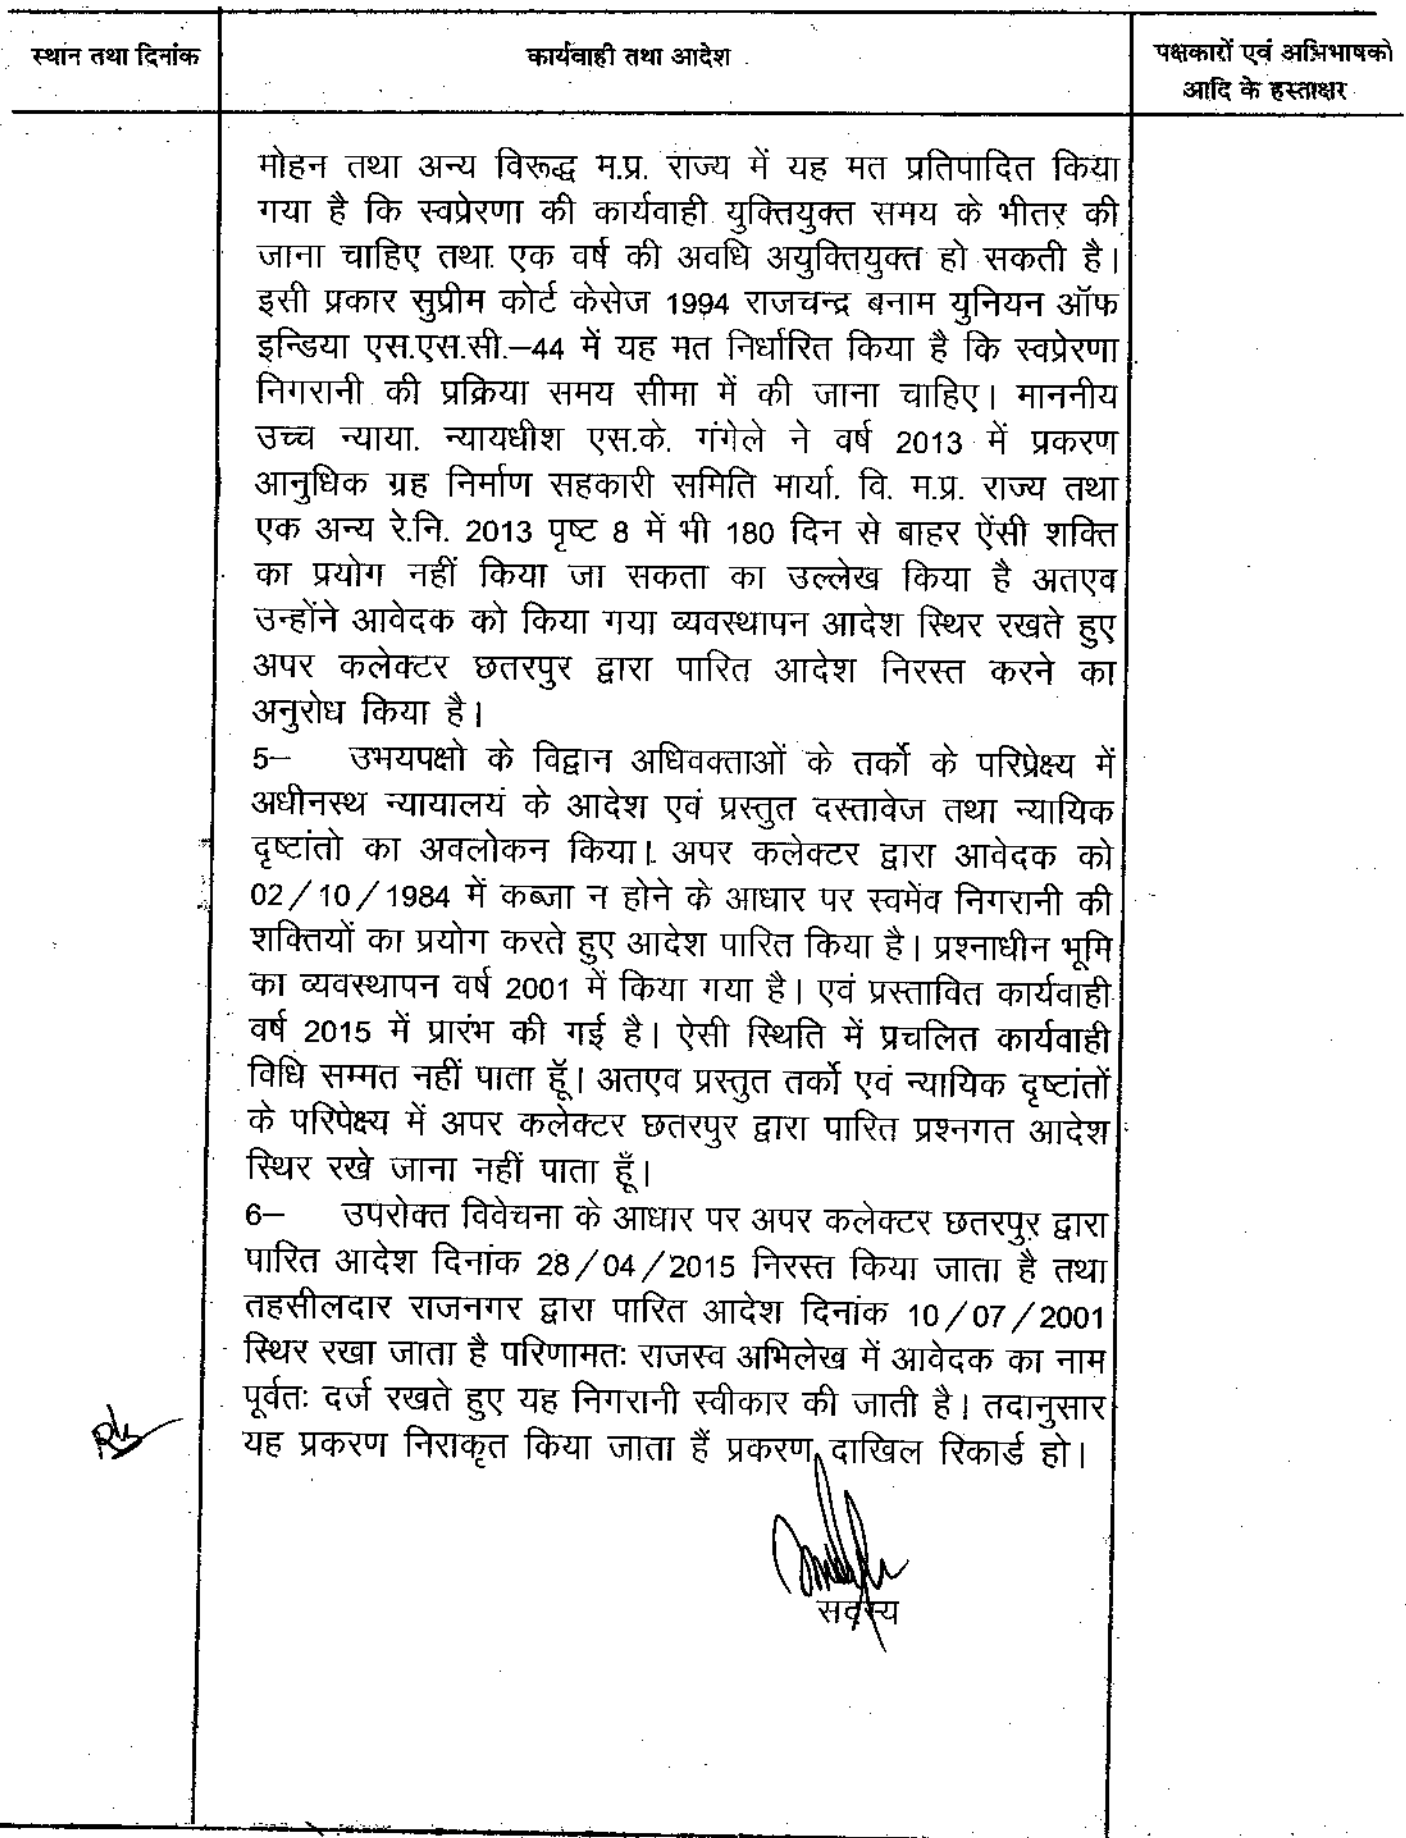 स्थान तथा दिनांक
कार्यवाही तथा आदेश
पक्षकारों एवं अभिभाषको
आदि के हस्ताक्षर
मोहन तथा अन्य विरूद्ध म.प्र. राज्य में यह मत प्रतिपादित किया
गया है कि स्वप्रेरणा की कार्यवाही युक्तियुक्त समय के भीतर की
जाना चाहिए तथा एक वर्ष की अवधि अयुक्तियुक्त हो सकती है।
इसी प्रकार सुप्रीम कोर्ट केसेज 1994 राजचन्द्र बनाम युनियन ऑफ
इन्डिया एस.एस.सी.–44 में यह मत निर्धारित किया है कि स्वप्रेरणा
निगरानी की प्रक्रिया समय सीमा में की जाना चाहिए। माननीय
उच्च न्याया. न्यायधीश एस.के. गंगेले ने वर्ष 2013 में प्रकरण
आनुधिक ग्रह निर्माण सहकारी समिति मार्या. वि. म.प्र. राज्य तथा
एक अन्य रे.नि. 2013 पृष्ट 8 में भी 180 दिन से बाहर ऐंसी शक्ति
का प्रयोग नहीं किया जा सकता का उल्लेख किया है अतएव
उन्होंने आवेदक को किया गया व्यवस्थापन आदेश स्थिर रखते हुए
अपर कलेक्टर छतरपुर द्वारा पारित आदेश निरस्त करने का
अनुरोध किया है।
5– उभयपक्षो के विद्वान अधिवक्ताओं के तर्को के परिप्रेक्ष्य में
अधीनस्थ न्यायालयं के आदेश एवं प्रस्तुत दस्तावेज तथा न्यायिक
दृष्टांतो का अवलोकन किया। अपर कलेक्टर द्वारा आवेदक को
02/10/1984 में कब्जा न होने के आधार पर स्वमेंव निगरानी की
शक्तियों का प्रयोग करते हुए आदेश पारित किया है। प्रश्नाधीन भूमि
का व्यवस्थापन वर्ष 2001 में किया गया है। एवं प्रस्तावित कार्यवाही
वर्ष 2015 में प्रारंभ की गई है। ऐसी स्थिति में प्रचलित कार्यवाही
विधि सम्मत नहीं पाता हूॅं। अतएव प्रस्तुत तर्को एवं न्यायिक दृष्टांतों
के परिपेक्ष्य में अपर कलेक्टर छतरपुर द्वारा पारित प्रश्नगत आदेश
स्थिर रखे जाना नहीं पाता हूॅं।
6– उपरोक्त विवेचना के आधार पर अपर कलेक्टर छतरपुर द्वारा
पारित आदेश दिनांक 28/04/2015 निरस्त किया जाता है तथा
तहसीलदार राजनगर द्वारा पारित आदेश दिनांक 10/07/2001
स्थिर रखा जाता है परिणामतः राजस्व अभिलेख में आवेदक का नाम
पूर्वतः दर्ज रखते हुए यह निगरानी स्वीकार की जाती है। तदानुसार
यह प्रकरण निराकृत किया जाता हैं प्रकरण दाखिल रिकार्ड हो।
सदस्य